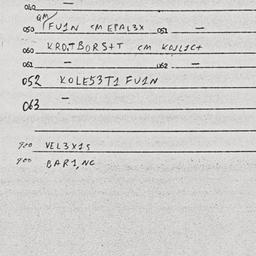 040 —
GM
050 FU1N CM EPAL3X 051 —
060 KRO,TBORS+T CM KOJL1C+
061 — 062 —
052 KOLE53T1 FU1N
063 —
900 VEL3X15
900 BAR1,NC